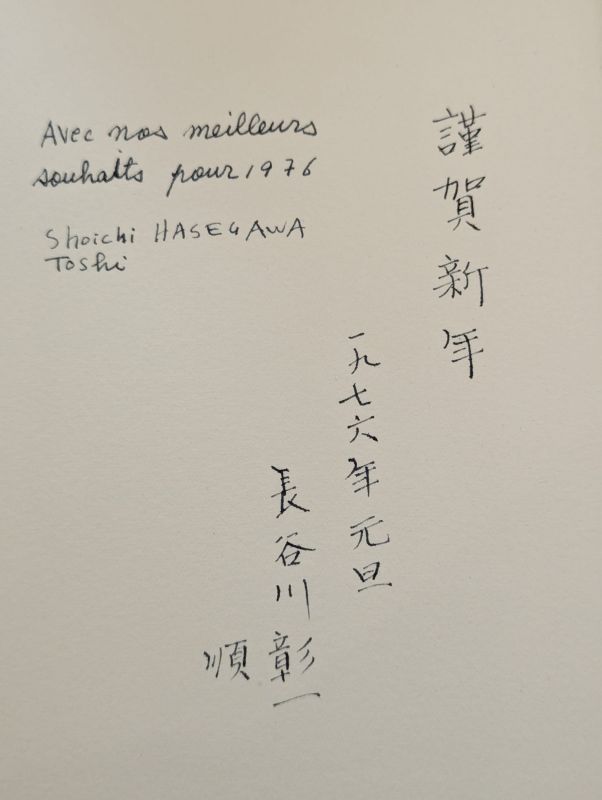 Avec nos meilleurs
souhaits pour 1976
Shoichi HASEGAWA
Toshi
謹賀新年
一九七六年元旦
長谷川彰一
順